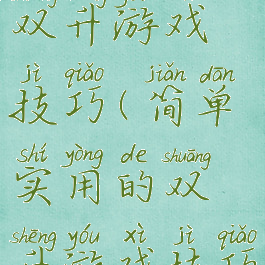 双升游戏
jì qiǎo jiǎn dān
技巧(简单
shí yòng de shuāng
实用的双
shēng yóu xì jì qiǎo
升游戏技巧